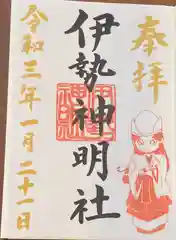 奉拝
伊勢神明社
令和三年一月二十一日